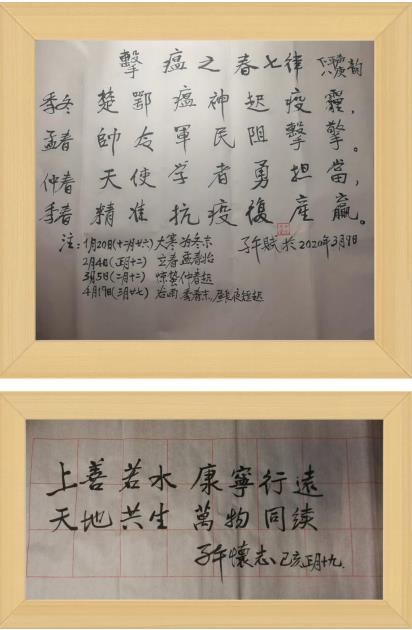 擊瘟之春七律 韵
季冬 楚鄂瘟神起疫霾，
孟春 帥令軍民阻擊擎。
仲春 天使学者勇担當，
季春 精准抗疫復産赢。
注：1月20日(十二月廿六)大寒为冬末
子午賦於2020年3月8日
2月4日(正月十一)立春孟春始
3月5日(二月十二)惊蛰仲春起
4月19日(三月廿七)谷雨季春末，昼长夜短起
上善若水 康寧行遠
天地共生 萬物同续
子午懷志 己亥正月十九.